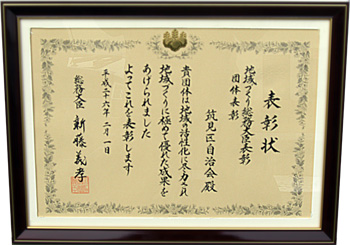 表彰状
地域づくり総務大臣表彰
団体表彰
筑見区自治会殿
貴団体は地域の活性化に尽力され
地域づくりに極めて優れた成果を
あげられました
よってこれを表彰します
平成二十六年二月一日
総務大臣 新藤義孝